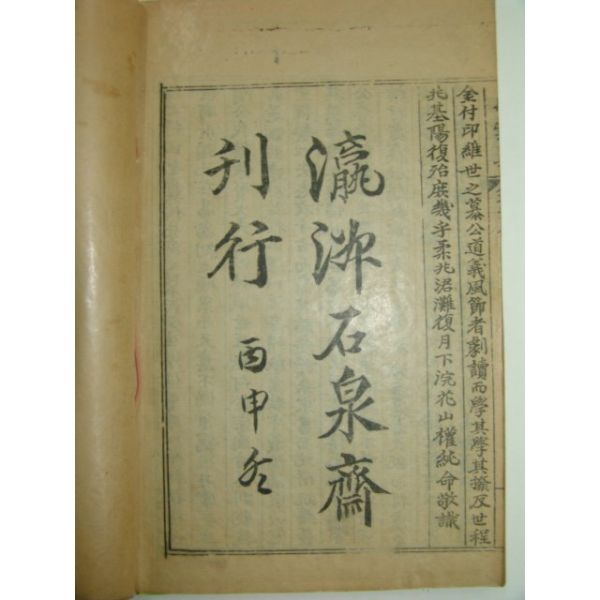 金付印維世之慕公道義風節者劇讀而學其學其撥反世程
兆基陽復殆庶幾乎柔兆涒灘復月下浣花山權純命敬識
瀛洲石泉齋
刊行
丙申冬